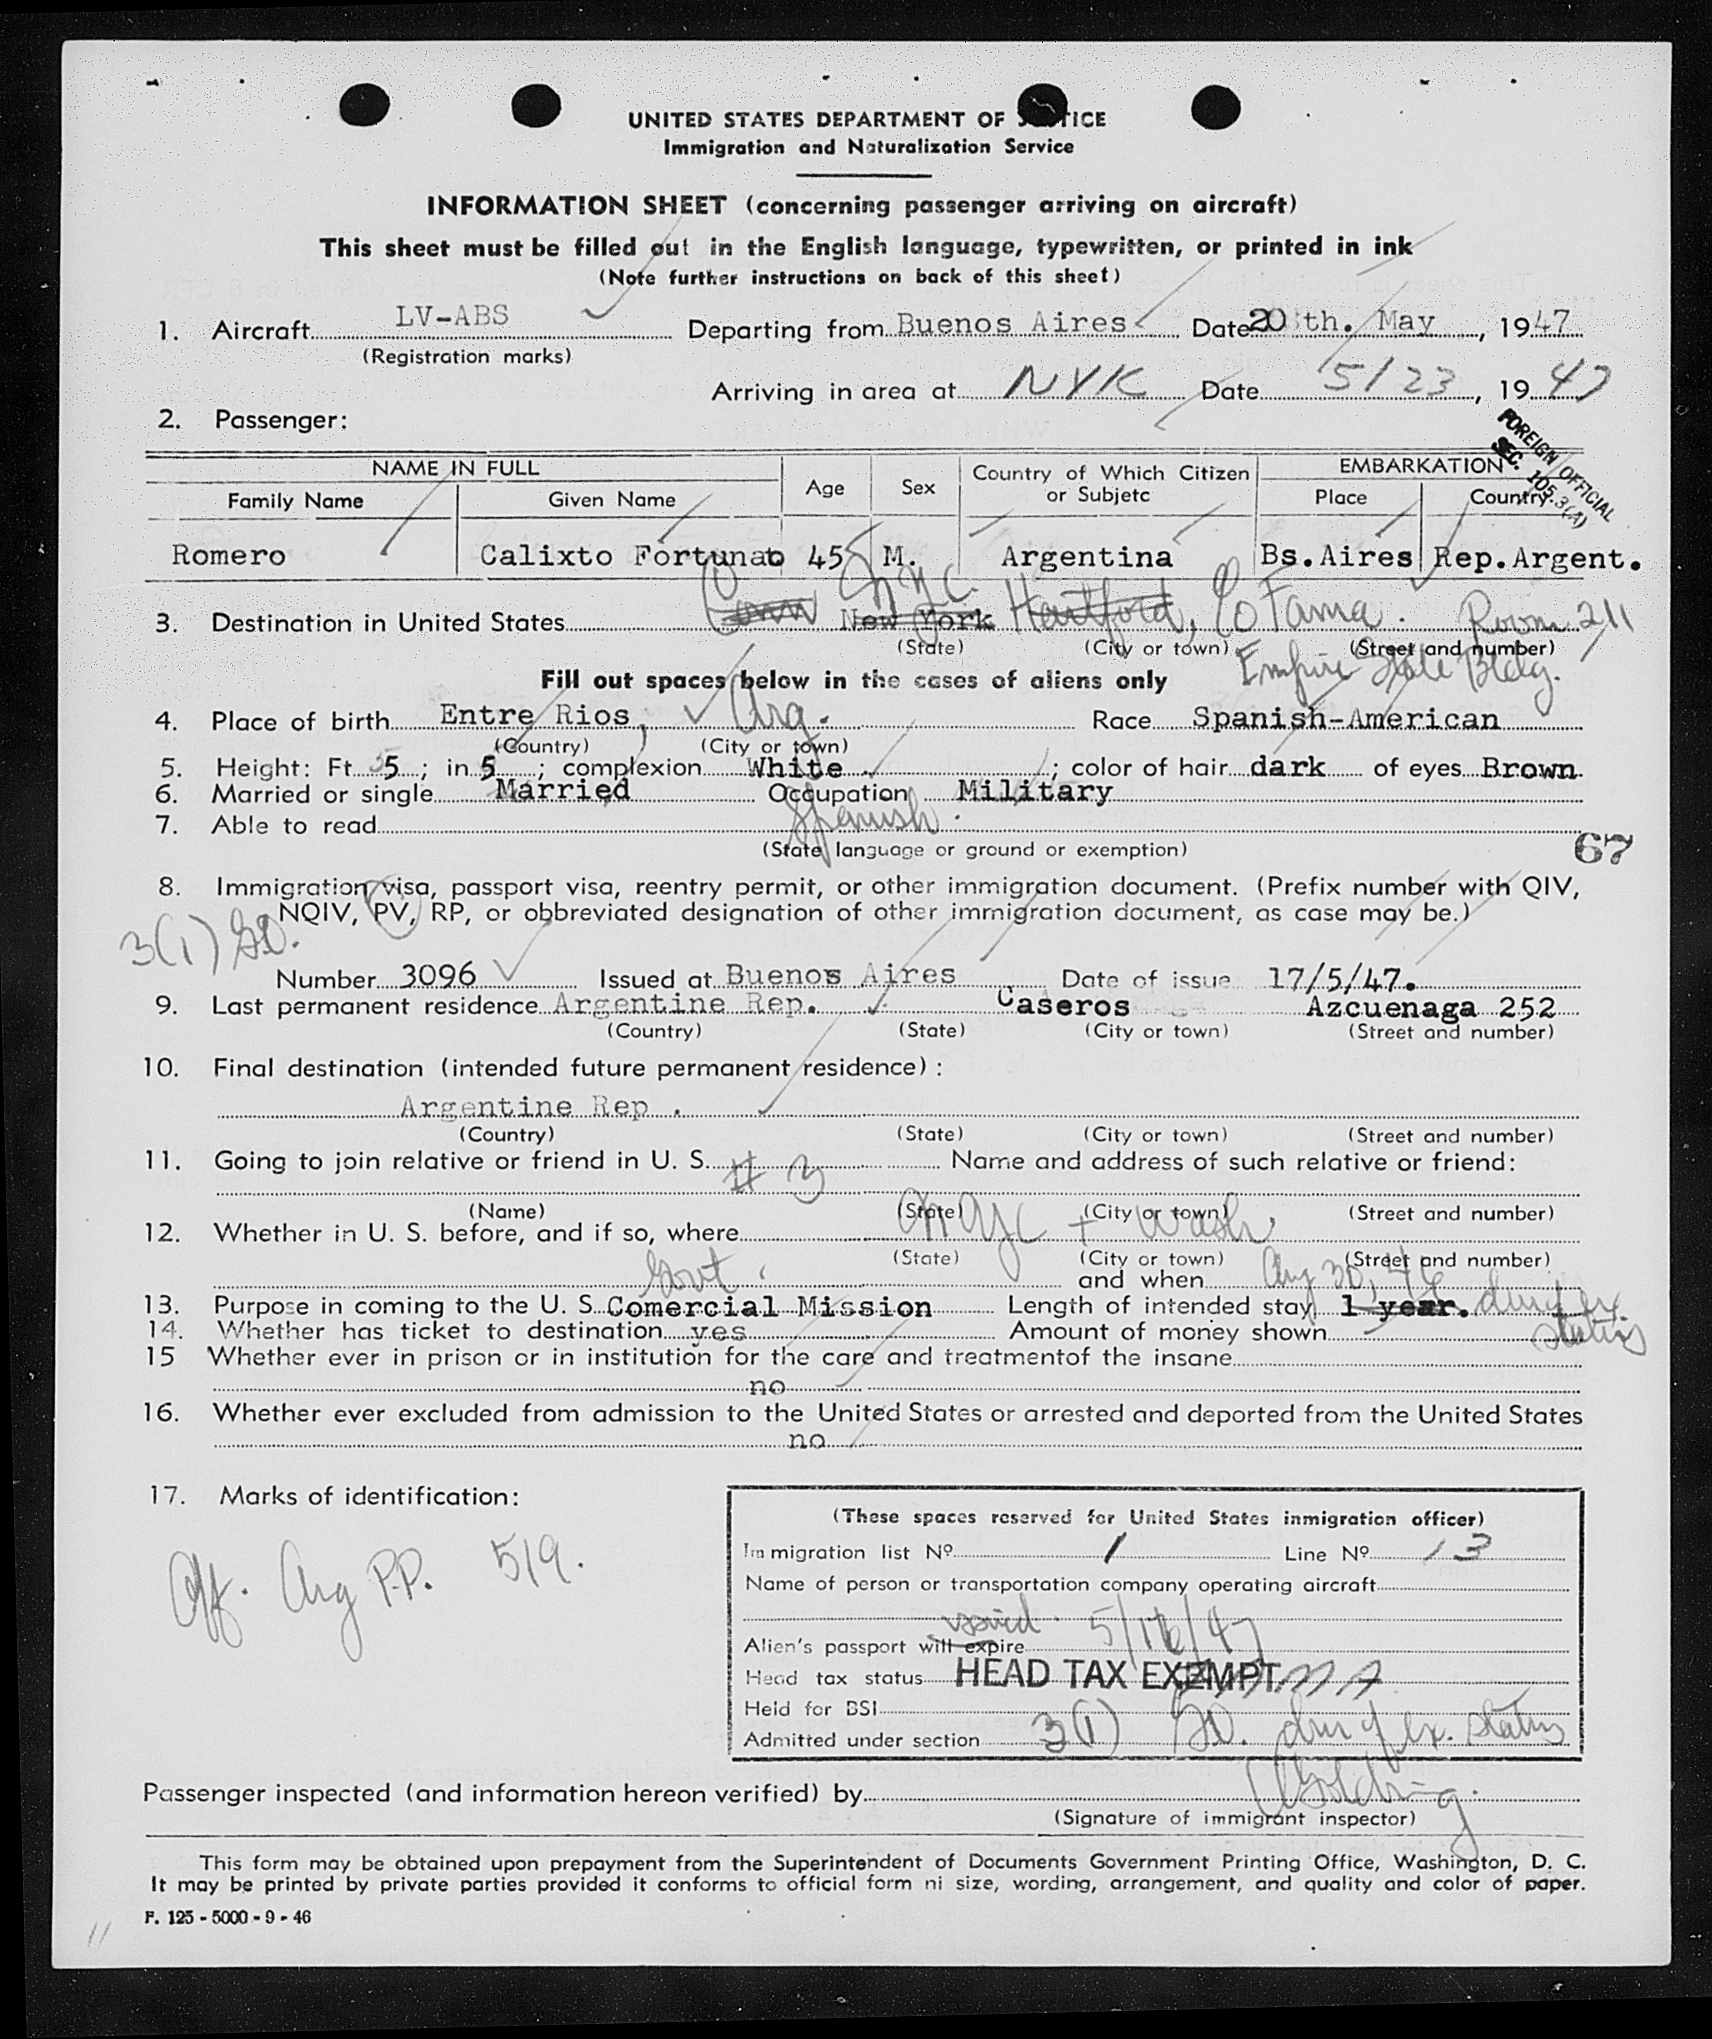 UNITED STATES DEPARTMENT OF JUSTICE
Immigration and Naturalization Service
INFORMATION SHEET (concerning passenger arriving on aircraft)
This sheet must be filled out in the English language, typewritten, or printed in ink
(Note further instructions on back of this sheet)
1. Aircraft LV-ABS Departing from Buenos Aires Date 20 th. May, 1947
(Registration marks)
Arriving in area at NYK Date 5/23, 1947
2. Passenger:
FOREIGN OFFICIAL
SEC. 105.3(A)
NAME IN FULL Age Sex Country of Which Citizen or Subjetc EMBARKATION
Family Name Given Name Place Country
Romero Calixto Fortunato 45 M. Argentina Bs.Aires Rep.Argent.
NYC.
3. Destination in United States Conn New York Hartford, C/o Fama. Room 211
(State) (City or town) (Street and number)
Empire State Bldg.
Fill out spaces below in the cases of aliens only
4. Place of birth Entre Rios, Arg. Race Spanish-American
(Country) (City or town)
5. Height: Ft. 5; in. 5; complexion White; color of hair dark of eyes Brown
6. Married or single Married Occupation Military
7. Able to read Spanish.
(State language or ground or exemption)
67
8. Immigration visa, passport visa, reentry permit, or other immigration document. (Prefix number with QIV,
NQIV, PV, RP, or obbreviated designation of other immigration document, as case may be.)
3(1) GO.
Number 3096 Issued at Buenos Aires Date of issue 17/5/47.
9. Last permanent residence Argentine Rep. Caseros Azcuenaga 252
(Country) (State) (City or town) (Street and number)
10. Final destination (intended future permanent residence) :
Argentine Rep .
(Country) (State) (City or town) (Street and number)
11. Going to join relative or friend in U. S. # 3 Name and address of such relative or friend:
(Name) (State) (City or town) (Street and number)
12. Whether in U. S. before, and if so, where NYC + Wash.
(State) (City or town) (Street and number)
Govt. and when Aug 30, 46
13. Purpose in coming to the U. S. Comercial Mission Length of intended stay 1 year. dur of ex. status
14. Whether has ticket to destination yes Amount of money shown
15 Whether ever in prison or in institution for the care and treatmentof the insane
no
16. Whether ever excluded from admission to the United States or arrested and deported from the United States
no
17. Marks of identification:
Off. Arg P.P. 519.
(These spaces reserved for United States inmigration officer)
Immigration list Nº 1 Line Nº 13
Name of person or transportation company operating aircraft
issued 5/16/47
Alien's passport will expire
Head tax status HEAD TAX EXEMPT
Held for BSI
Admitted under section 3(1) GO. dur of ex. status
Passenger inspected (and information hereon verified) by Golding.
(Signature of immigrant inspector)
This form may be obtained upon prepayment from the Superintendent of Documents Government Printing Office, Washington, D. C.
It may be printed by private parties provided it conforms to official form ni size, wording, arrangement, and quality and color of paper.
F. 125 - 5000 - 9 - 46
11